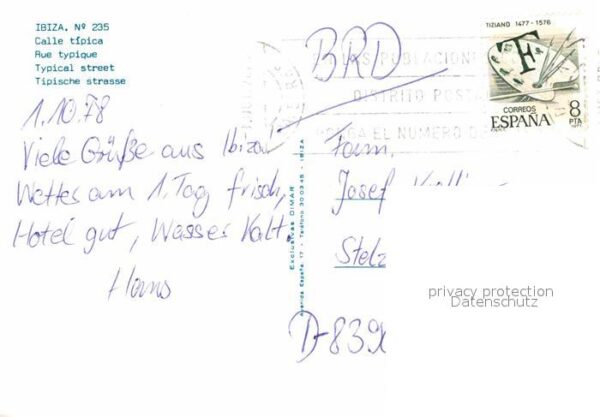 IBIZA, Nº 235
Calle típica
Rue typique
Typical street
Tipische strasse
1.10.78
Viele Grüße aus Ibiza.
Wetter am 1. Tag frisch,
Hotel gut, Wasser kalt.
Hans
Exclusivas DIMAR
Avenida España, 17 - Teléfono
IBIZA
BRD
POBLACION
DISTRITO POSTA
EL NUMERO DE
TIZIANO 1477-1576
CORREOS
ESPAÑA
8
PTA
Fam.
Josef
Stelz
D-839
privacy protection
Datenschutz